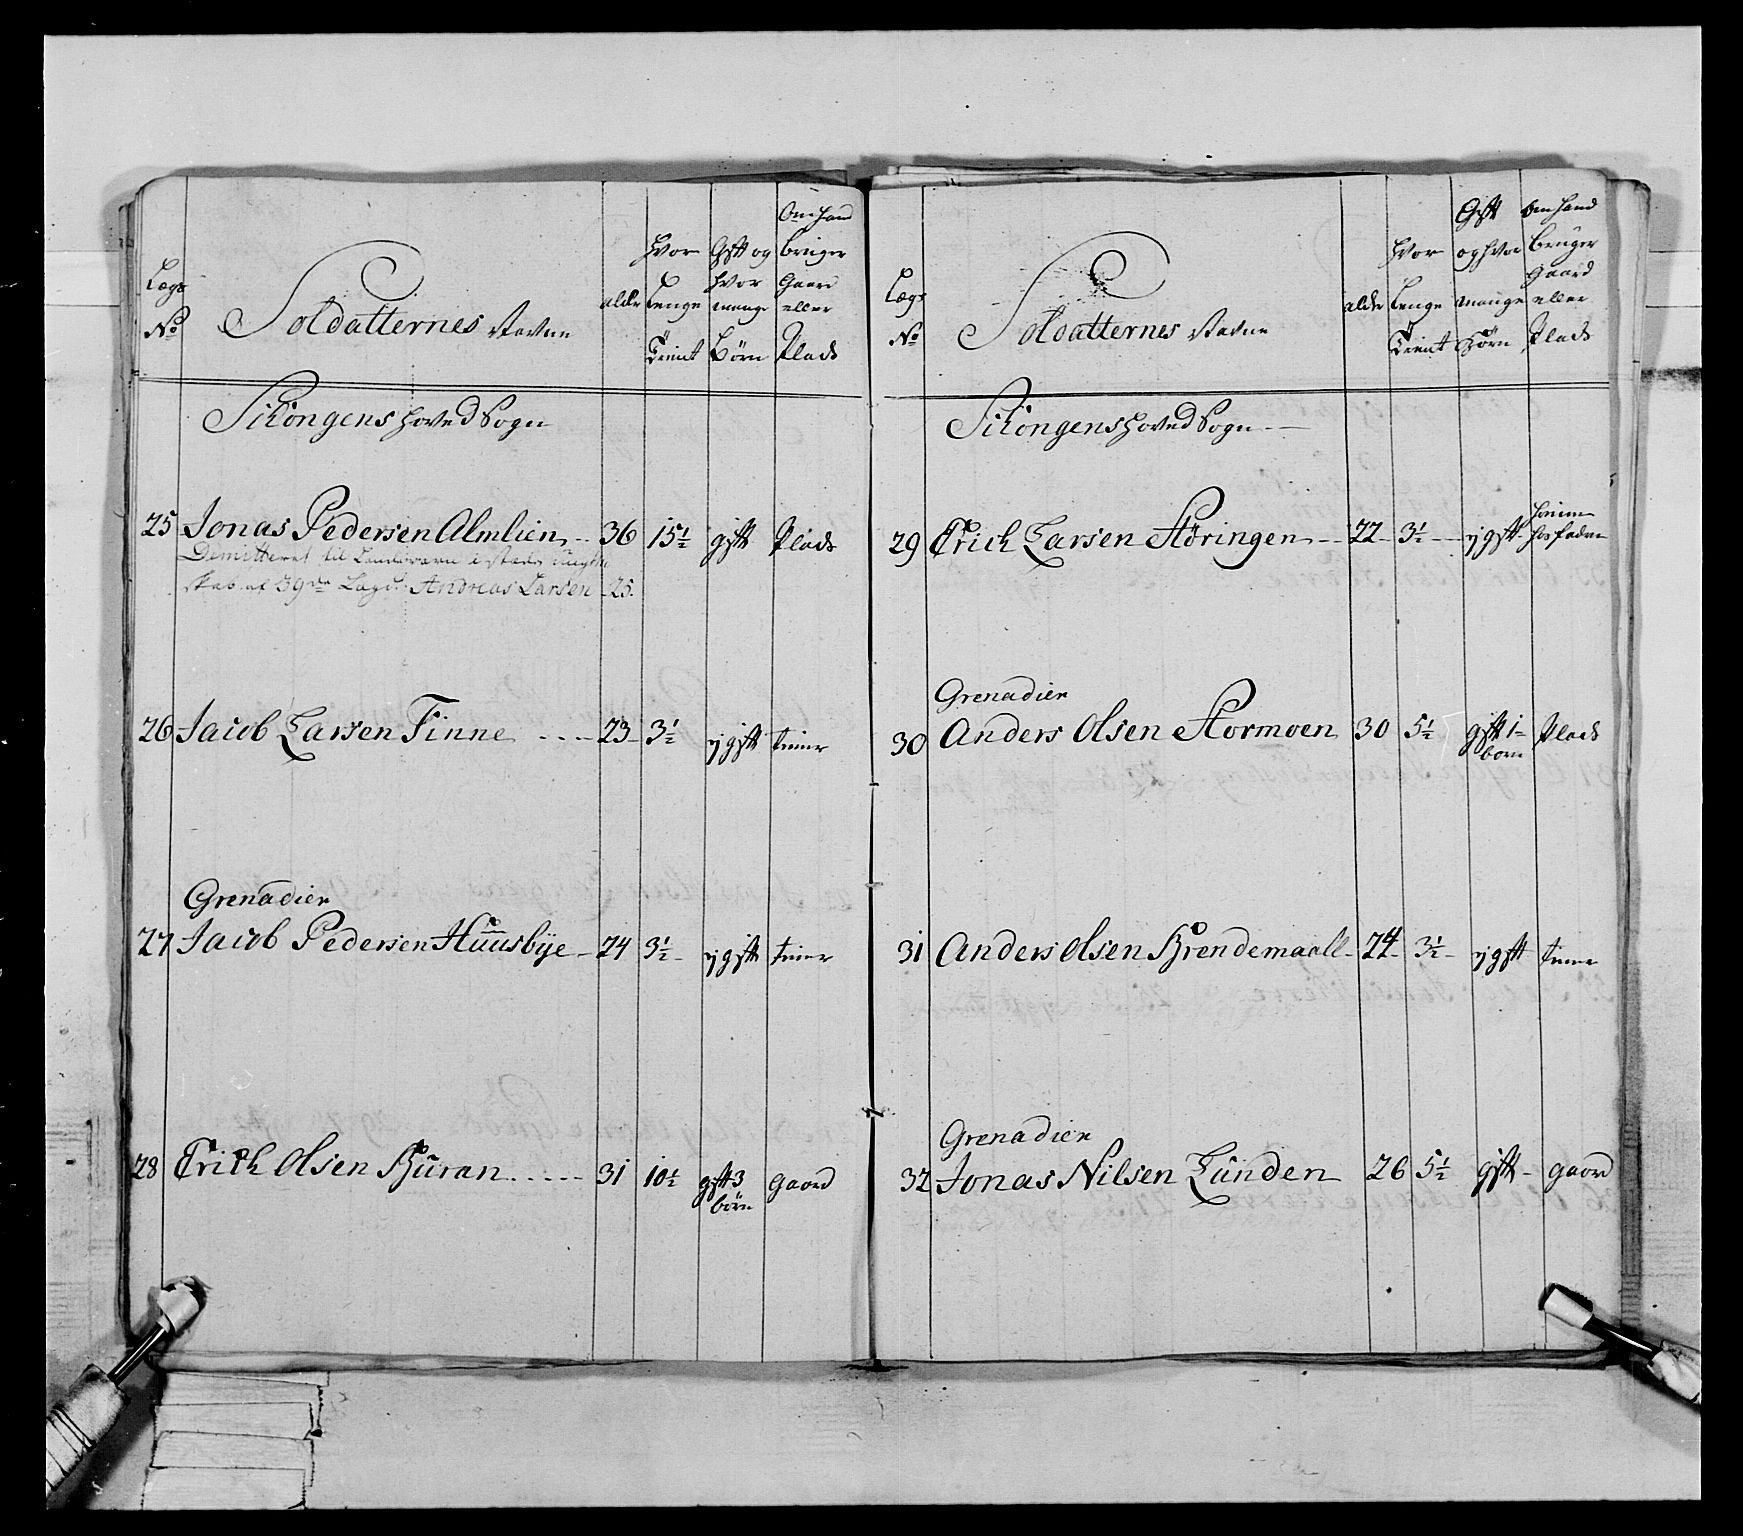 Legs No
Soldatternes Nafne
alder
Hvor Lenge Tient
Gift og Hvor mange Børn
Om hand bruger Gaard eller Plads
Schongens Hoved Sogn
25 Jonas Pedersen Almlien 36 15½ gift Plads
Demitteret til Landværn i steds
skab af 39de Lægd: Andreas Larsen 25.
26 Jacob Larsen Finne 23 3½ ugift tiener
Grenadier
27 Jacob Pedersen Huusbye 24 3½ ugift tiener
28 Erich Olsen Buran 31 10½ gift 3 børn gaard
Legs No
Soldatternes Nafne
alder
Hvor Lenge Tient
Gift og hvor mange Børn
Om hand bruger gaard eller Plads
Schongens Hoved Sogn
29 Erich Larsen Støringen 22 3½ ugift hiemme hos fadren
Grenadier
30 Anders Olsen Stormoen 30 5½ gift 1 børn Plads
31 Anders Olsen Brendemaall 24 3½ ugift tiener
Grenadier
32 Jonas Nilsen Lunden 26 5½ gift gaard